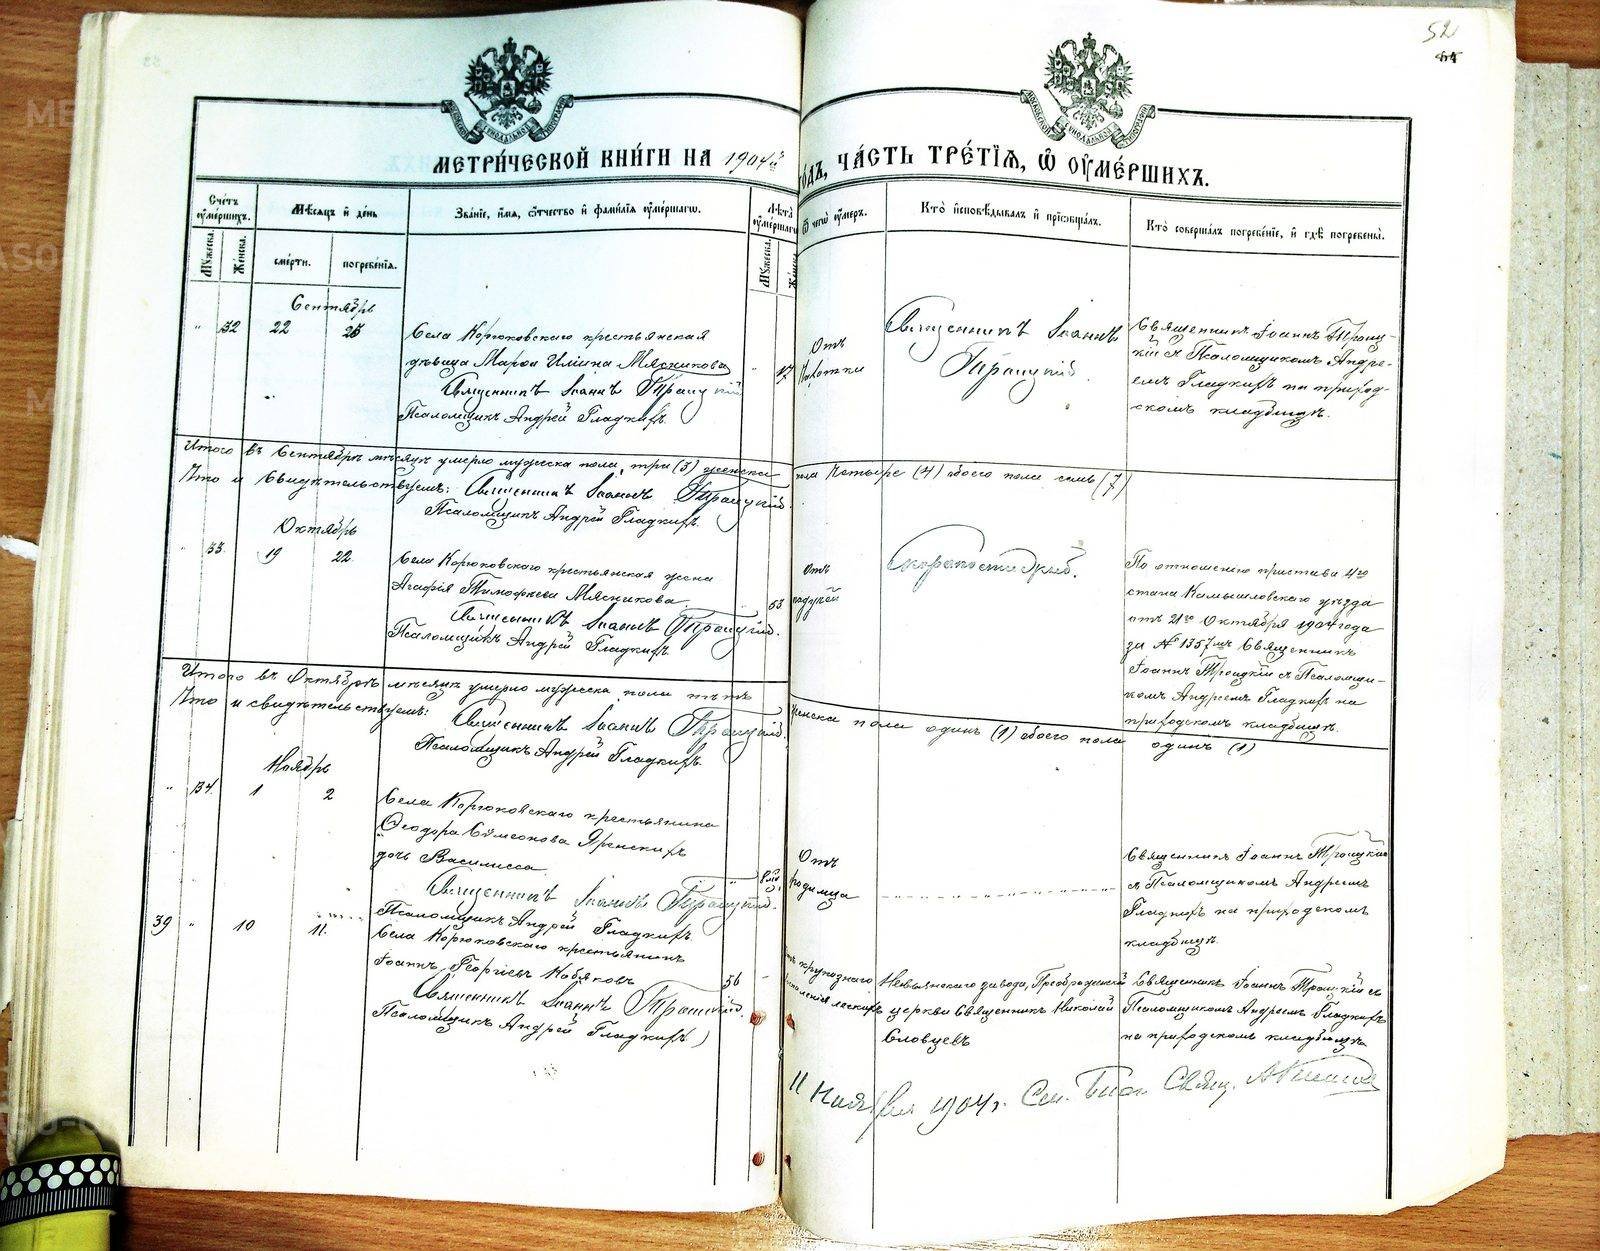 52
МЕТРИ́ЧЕСКОЙ КНИ́ГИ НА 1904й
ГОДЪ, ЧА́СТЬ ТРЕ́ТІѦ, Ѿ ОУМЕ́РШИХЪ.
Счетъ оумершихъ.
Мужеска.
Женска.
Мѣсяцъ и день
смерти.
погребенія.
Званіе, имя, отчество и фамилія оумершагω.
Лѣта оумершагω
Мужеска.
Женска
Ѿ чегω оумеръ.
Кто исповѣдывалъ и пріωбщалъ.
Кто совершалъ погребеніе, и гдѣ погребены.
Сентябрь
" 32 22 25
Села Корюковскаго крестьянская
дѣвица Марѳа Илiина Мясникова
" 17
Священникъ Іоаннъ Троицкій
Псаломщикъ Андрей Гладкихъ.
Отъ
Чахотки
Священникъ Іоаннъ
Троицкій.
Священникъ Іоаннъ Троиц-
кій съ Псаломщикомъ Андре-
емъ Гладкихъ на приход-
скомъ кладбищѣ.
Итого въ Сентябрѣ мѣсяцѣ умерло мужеска пола три (3) женска
пола Четыре (4) обоего пола семь (7)
Что и Свидѣтельствуемъ: Священникъ Іоаннъ Троицкій.
Псаломщикъ Андрей Гладкихъ.
Октябрь
" 33. 19 22.
Села Корюковскаго крестьянская жена
Агафія Тимофѣева Мясникова
" 53
Священникъ Іоаннъ Троицкій.
Псаломщикъ Андрей Гладкихъ.
Отъ
падучей
Скоропостижно.
По отношенію пристава 4го
стана Камышловскаго уѣзда
отъ 21го Октября 1904 года
за № 1357мъ Священникъ
Іоаннъ Троицкій съ Псаломщи-
комъ Андреемъ Гладкихъ на
приходскомъ кладбищѣ.
Итого въ Октябрѣ мѣсяцѣ умерло мужеска пола нѣтъ
женска пола одинъ (1) обоего пола одинъ (1)
Что и свидѣтельствуемъ:
Священникъ Іоаннъ Троицкій.
Псаломщикъ Андрей Гладкихъ.
Ноябрь
" 34. 1 2
Села Корюковскаго крестьянина
Ѳеодора Сѵмеонова Яренскихъ
дочь Василисса
Священникъ Іоаннъ Троицкій.
Псаломщикъ Андрей Гладкихъ
Отъ
родимца
Священникъ Іоаннъ Троицкій
съ Псаломщикомъ Андреемъ
Гладкихъ на приходскомъ
кладбищѣ.
39 " 10 11.
Села Корюковскаго крестьянинъ
Іоаннъ Георгіевъ Кобяковъ
56 -
Священникъ Іоаннъ Троицкій.
Псаломщикъ Андрей Гладкихъ)
крупознаго
воспаленія легкихъ
Невьянскаго завода, Преображенской
церкви Священникъ Николай
Словцевъ
Священникъ Іоаннъ Троицкій съ
Псаломщикомъ Андреемъ Гладкихъ
на приходскомъ кладбищѣ
11 Ноября 1904 г. Свящ.